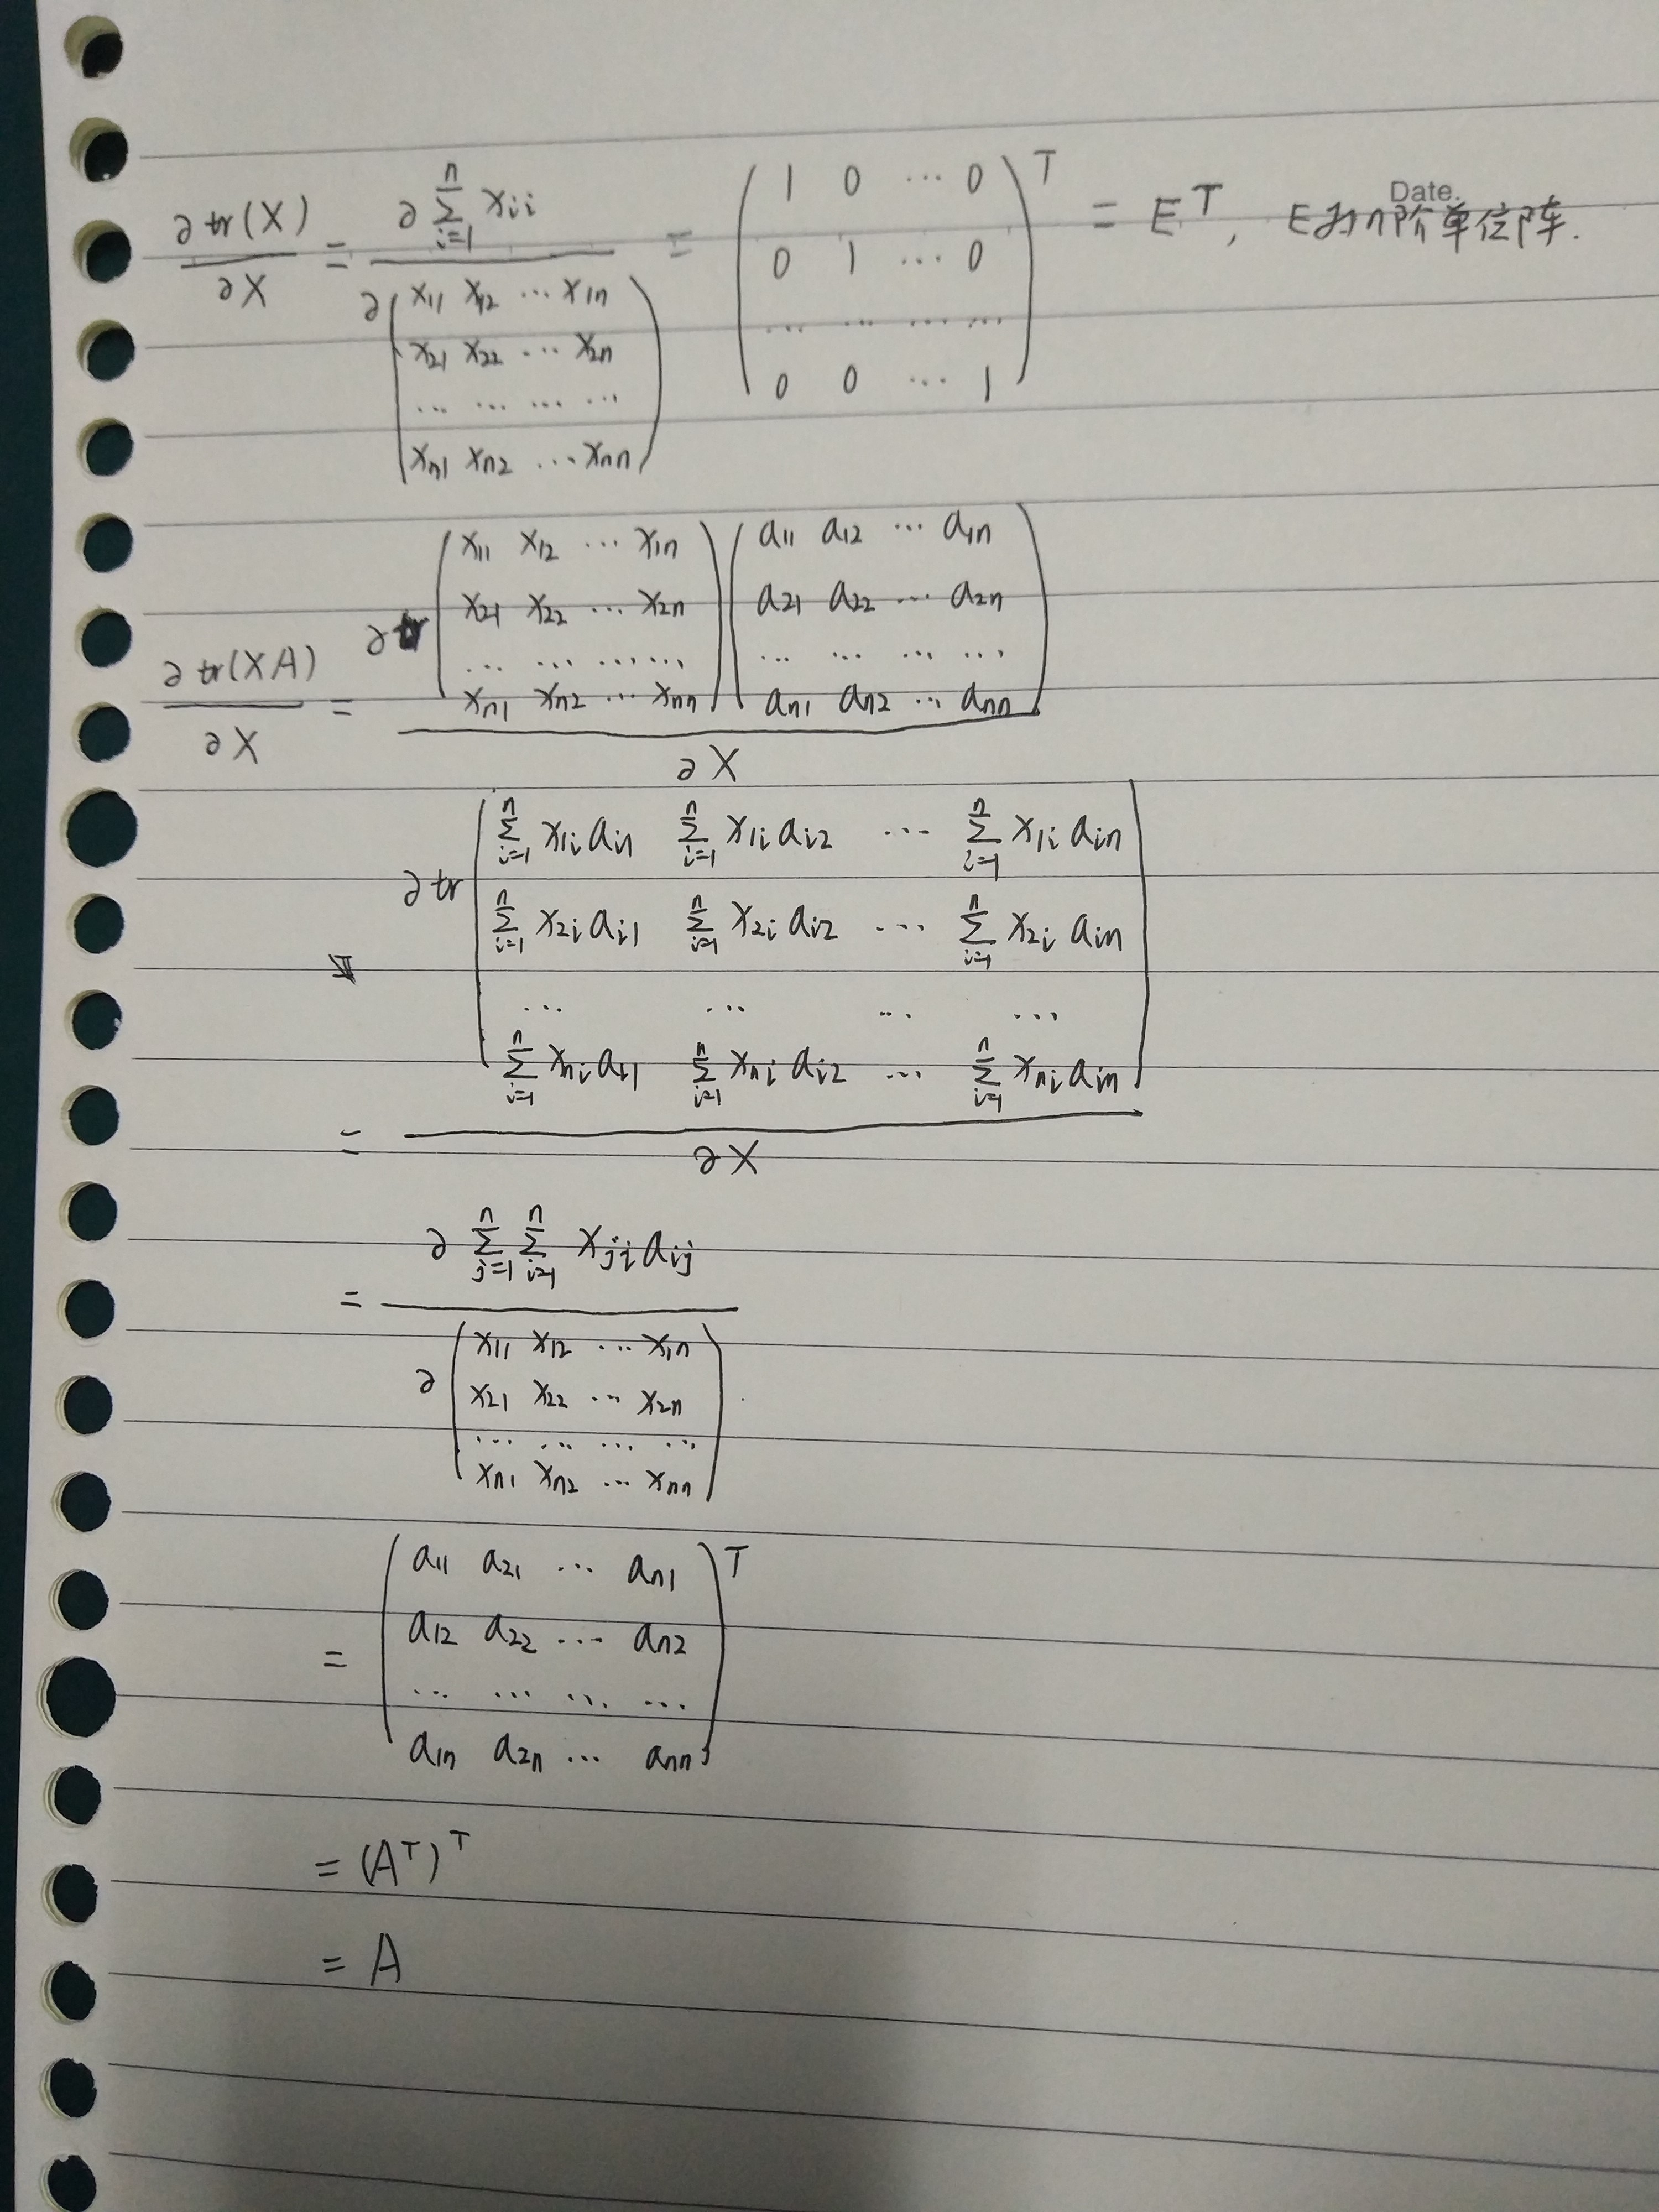 Date.
∂tr(X)/∂X = ∂ ∑_{i=1}^{n} x_{ii} / ∂ ( x_{11} x_{12} ⋯ x_{1n} ; x_{21} x_{22} ⋯ x_{2n} ; ⋯ ⋯ ⋯ ⋯ ; x_{n1} x_{n2} ⋯ x_{nn} ) = ( 1 0 ⋯ 0 ; 0 1 ⋯ 0 ; ⋯ ⋯ ⋯ ⋯ ; 0 0 ⋯ 1 )^T = E^T, E为n阶单位阵.
∂tr(XA)/∂X = ∂tr ( x_{11} x_{12} ⋯ x_{1n} ; x_{21} x_{22} ⋯ x_{2n} ; ⋯ ⋯ ⋯ ⋯ ; x_{n1} x_{n2} ⋯ x_{nn} ) ( a_{11} a_{12} ⋯ a_{1n} ; a_{21} a_{22} ⋯ a_{2n} ; ⋯ ⋯ ⋯ ⋯ ; a_{n1} a_{n2} ⋯ a_{nn} ) / ∂X
= ∂tr ( ∑_{i=1}^{n} x_{1i} a_{i1} ∑_{i=1}^{n} x_{1i} a_{i2} ⋯ ∑_{i=1}^{n} x_{1i} a_{in} ; ∑_{i=1}^{n} x_{2i} a_{i1} ∑_{i=1}^{n} x_{2i} a_{i2} ⋯ ∑_{i=1}^{n} x_{2i} a_{in} ; ⋯ ⋯ ⋯ ⋯ ; ∑_{i=1}^{n} x_{ni} a_{i1} ∑_{i=1}^{n} x_{ni} a_{i2} ⋯ ∑_{i=1}^{n} x_{ni} a_{in} ) / ∂X
= ∂ ∑_{j=1}^{n} ∑_{i=1}^{n} x_{ji} a_{ij} / ∂ ( x_{11} x_{12} ⋯ x_{1n} ; x_{21} x_{22} ⋯ x_{2n} ; ⋯ ⋯ ⋯ ⋯ ; x_{n1} x_{n2} ⋯ x_{nn} )
= ( a_{11} a_{21} ⋯ a_{n1} ; a_{12} a_{22} ⋯ a_{n2} ; ⋯ ⋯ ⋯ ⋯ ; a_{1n} a_{2n} ⋯ a_{nn} )^T
= (A^T)^T
= A